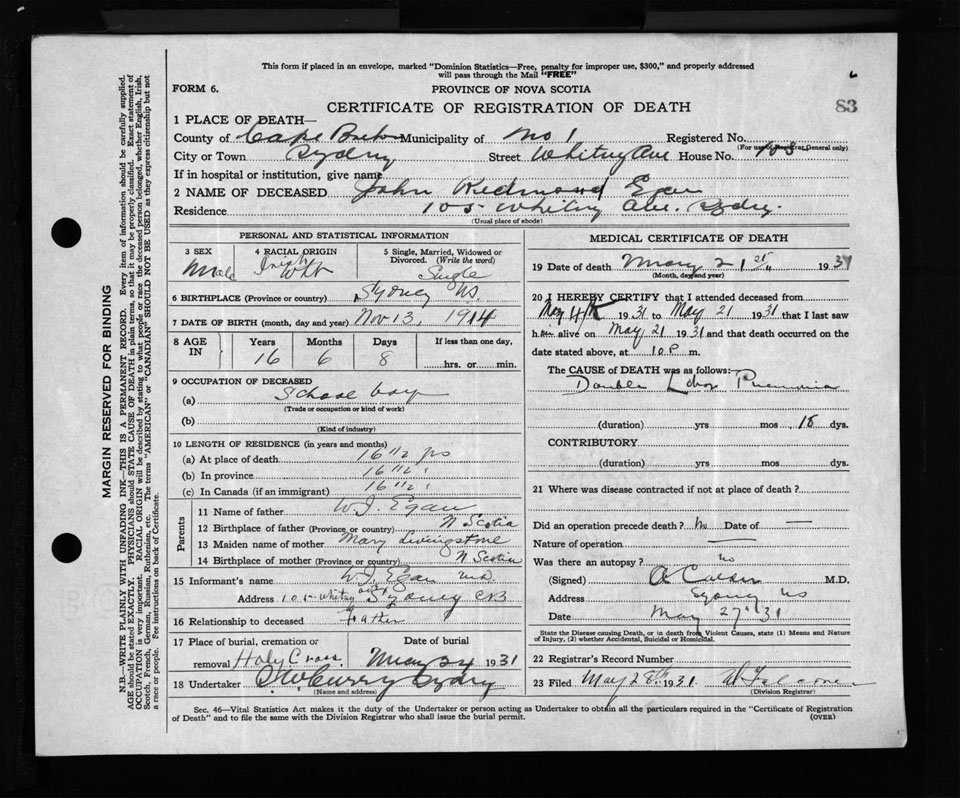 This form if placed in an envelope, marked "Dominion Statistics—Free, penalty for improper use, $300," and properly addressed
will pass through the Mail "FREE"
6
FORM 6.
PROVINCE OF NOVA SCOTIA
CERTIFICATE OF REGISTRATION OF DEATH
83
1 PLACE OF DEATH—
County of Cape Breton Municipality of No 1 Registered No.
(For use of Registrar General only)
City or Town Sydney Street Whitney Ave House No. 105
If in hospital or institution, give name
2 NAME OF DECEASED John Redmond Egan
Residence 105 Whitney Ave. Sydney.
(Usual place of abode)
PERSONAL AND STATISTICAL INFORMATION
3 SEX Male
4 RACIAL ORIGIN Irish
5 Single, Married, Widowed or Divorced. (Write the word) Single
6 BIRTHPLACE (Province or country) Sydney NS.
7 DATE OF BIRTH (month, day and year) Nov 13, 1914
8 AGE IN Years 16 Months 6 Days 8 If less than one day, hrs. or min.
9 OCCUPATION OF DECEASED
(a) School boy
(Trade or occupation or kind of work)
(b)
(Kind of industry)
10 LENGTH OF RESIDENCE (in years and months)
(a) At place of death 16 1/2 yrs
(b) In province 16 1/2 "
(c) In Canada (if an immigrant) 16 1/2 "
Parents
11 Name of father W. J. Egan
12 Birthplace of father (Province or country) N Scotia
13 Maiden name of mother Mary Livingstone
14 Birthplace of mother (Province or country) N Scotia
15 Informant's name W. J. Egan MD.
Address 105 Whitney Ave Sydney CB
16 Relationship to deceased father
17 Place of burial, cremation or removal Holy Cross
Date of burial May 24 1931
18 Undertaker Curry Sydney
(Name and address)
MEDICAL CERTIFICATE OF DEATH
19 Date of death May 21st 1931
(Month, day and year)
20 I HEREBY CERTIFY that I attended deceased from
May 4th 1931 to May 21 1931 that I last saw
him alive on May 21 1931 and that death occurred on the
date stated above, at 10 P m.
The CAUSE of DEATH was as follows:
Double Lobar Pneumonia
(duration) yrs mos 18 dys.
CONTRIBUTORY
(duration) yrs mos dys.
21 Where was disease contracted if not at place of death?
Did an operation precede death? No Date of —
Nature of operation —
Was there an autopsy? no
(Signed) M.D.
Address Sydney NS
Date May 27th 31
State the Disease causing Death, or in death from Violent Causes, state (1) Means and Nature of Injury, (2) whether Accidental, Suicidal or Homicidal.
22 Registrar's Record Number
23 Filed May 28th 1931.
(Division Registrar)
Sec. 46—Vital Statistics Act makes it the duty of the Undertaker or person acting as Undertaker to obtain all the particulars required in the "Certificate of Registration
of Death" and to file the same with the Division Registrar who shall issue the burial permit.
(OVER)
MARGIN RESERVED FOR BINDING
N.B.—WRITE PLAINLY WITH UNFADING INK—THIS IS A PERMANENT RECORD. Every item of information should be carefully supplied.
AGE should be stated EXACTLY. PHYSICIANS should STATE CAUSE OF DEATH in plain terms, so that it may be properly classified. Exact statement of
OCCUPATION is very important. RACIAL ORIGIN will be described by stating to what people or race the deceased person belonged, whether English, Irish,
Scotch, French, German, Russian, Ruthenian, etc. The terms "AMERICAN" or "CANADIAN" SHOULD NOT BE USED as they express citizenship but not
a race or people. See instructions on back of Certificate.